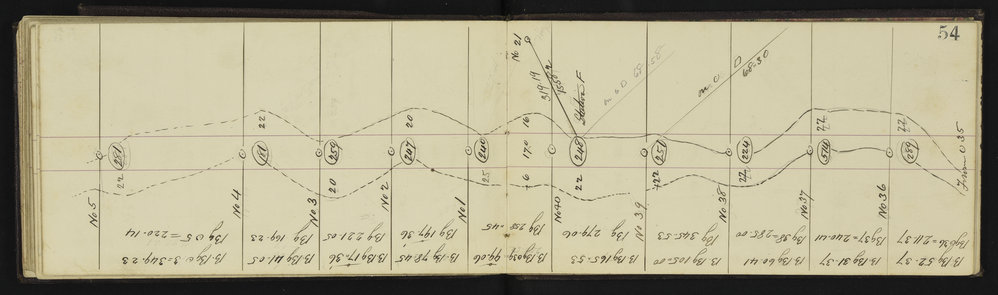 54
No 21
319-19
Station F
m o D 68-58
m o D
68-30
22
20
16
170
16
22
22
(281)
(181)
(259)
(247)
(240)
(248)
(251)
(224)
(574)
(289)
22
20
25
22
22
22
From 035
No 5
No 4
No 3
No 2
No 1
No 40
No 39
No 38
No 37
No 36
Bg 05=220-14
Bg 169-23
Bg 221-05
Bg 197-36
Bg 258-45
Bg 279-06
Bg 345-53
Bg 38=285-00
Bg 37-240-41
Bg 036=211-37
B-Bg 03=349-23
B-Bg 41-05
B-Bg 17-36
B-Bg 78-45
B-Bg 039-99-06
B-Bg 165-53
B-Bg 105-00
B-Bg 60-41
B-Bg 31-37
B-Bg 52-37